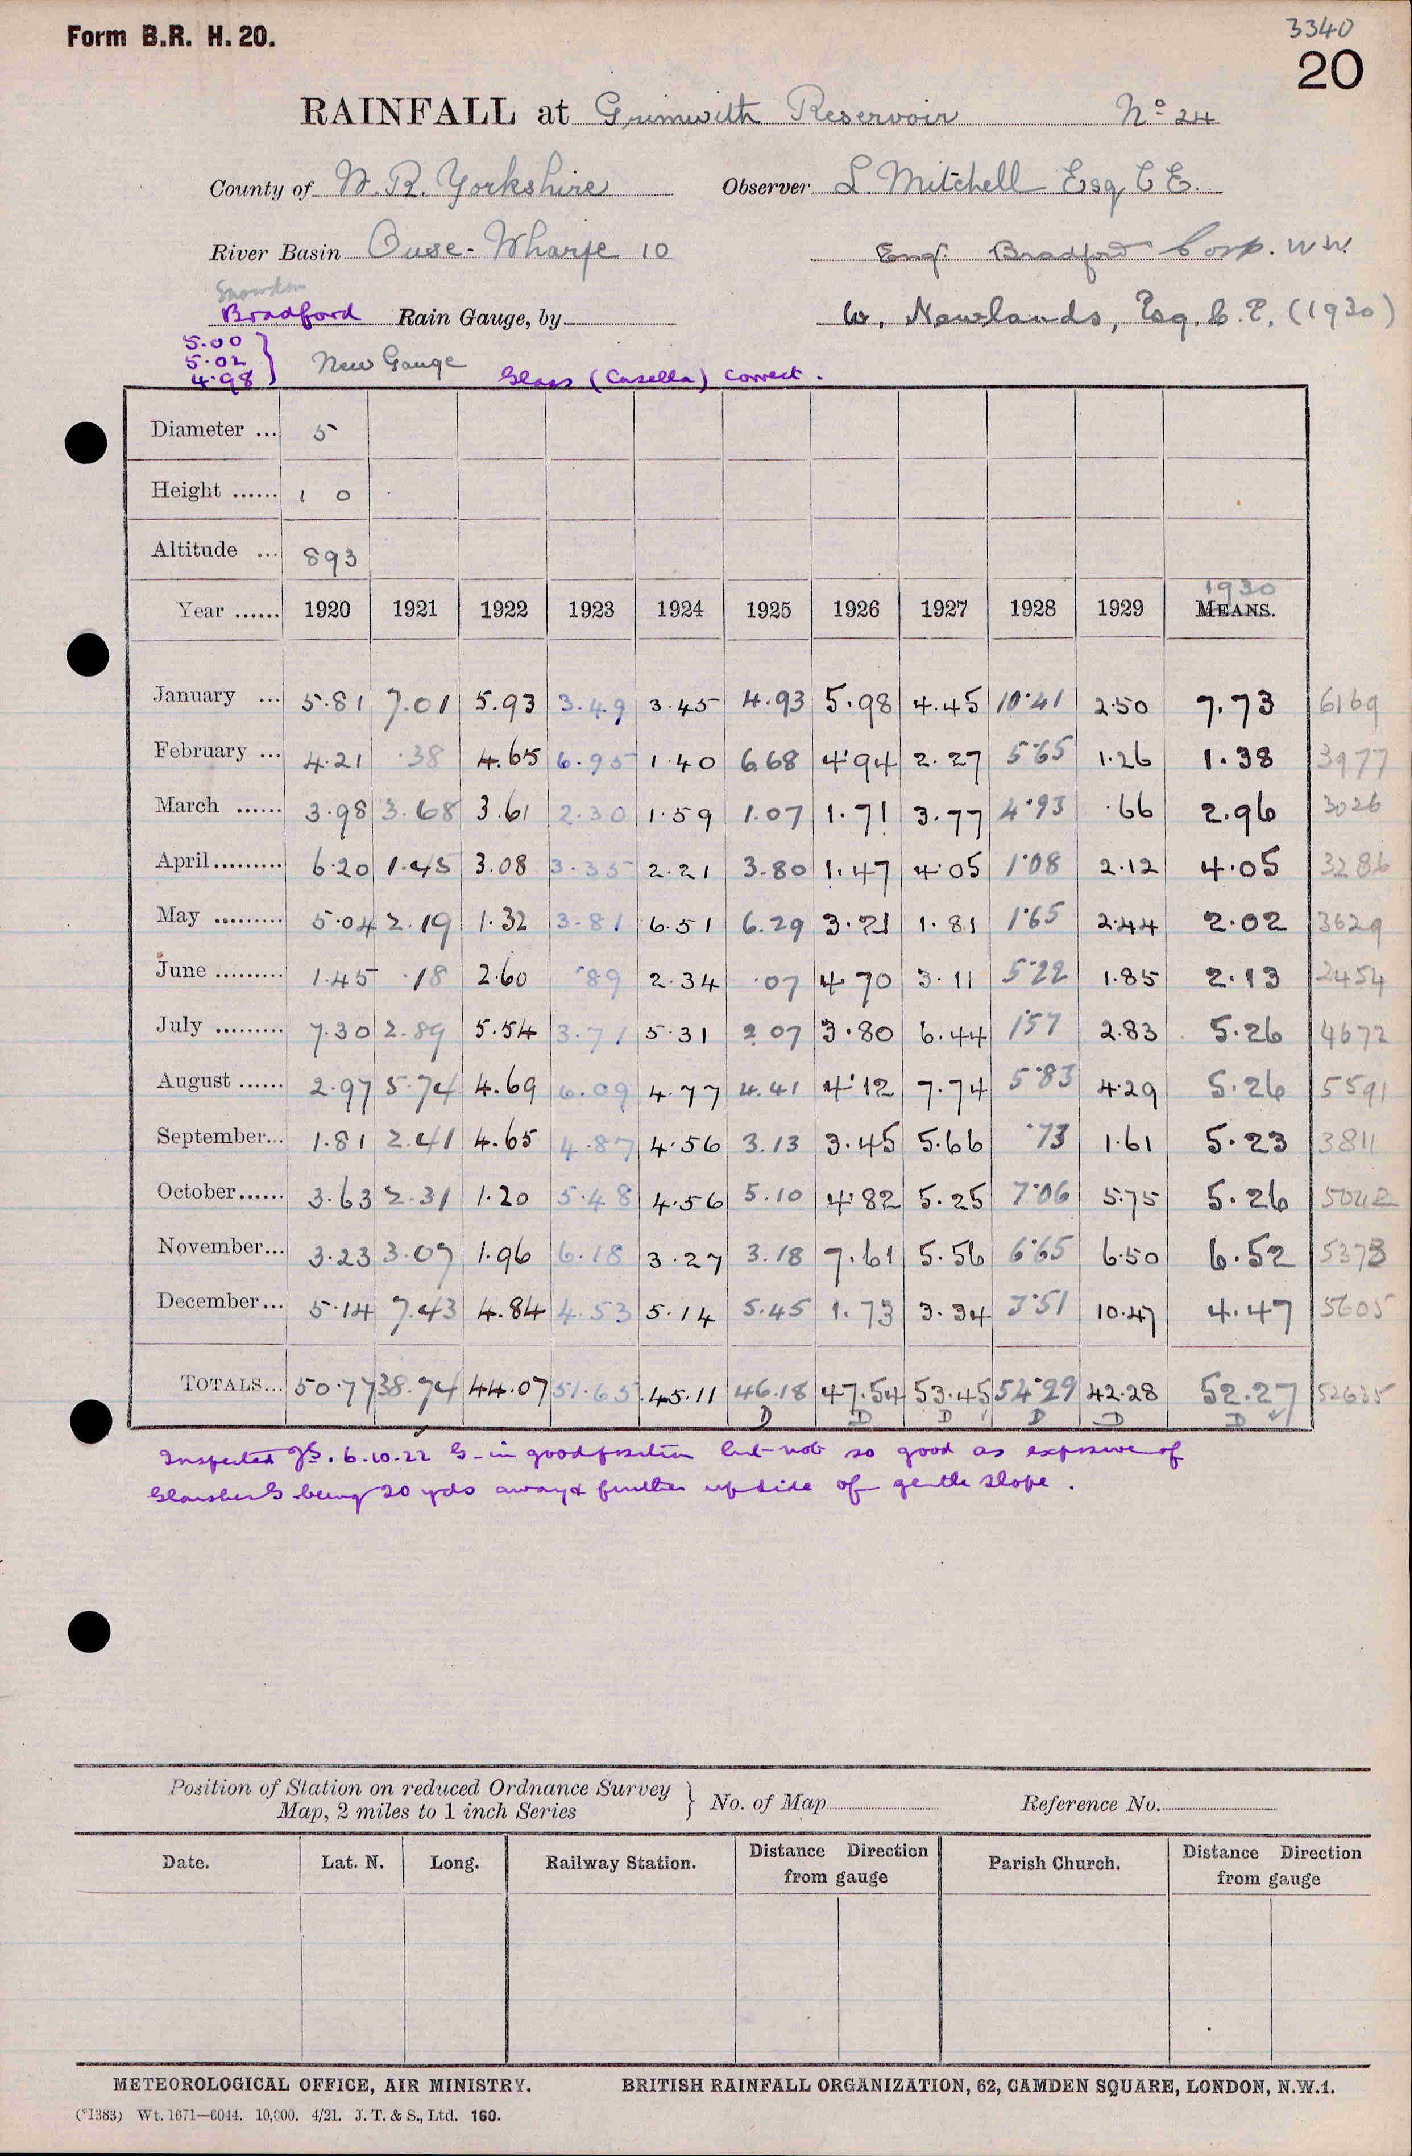 Form B.R. H. 20.
3340
20
RAINFALL at Grimwith Reservoir No 24
County of W. R. Yorkshire Observer L Mitchell Esq C E.
River Basin Ouse - Wharfe 10 Eng. Bradford Corp. W W.
Snowdon
Bradford Rain Gauge, by W. Newlands, Esq. C. E. (1930)
5.00
5.02
4.98
New Gauge Glass (Casella) correct.
Diameter ... 5
Height ...... 1 0
Altitude ... 893
1930
Year ...... 1920 1921 1922 1923 1924 1925 1926 1927 1928 1929 MEANS.
January ... 5.81 7.01 5.93 3.49 3.45 4.93 5.98 4.45 10.41 2.50 7.73 6169
February ... 4.21 .38 4.65 6.95 1.40 6.68 4.94 2.27 5.65 1.26 1.38 3977
March ...... 3.98 3.68 3.61 2.30 1.59 1.07 1.71 3.77 4.93 .66 2.96 3026
April......... 6.20 1.45 3.08 3.35 2.21 3.80 1.47 4.05 1.08 2.12 4.05 3286
May ......... 5.04 2.19 1.32 3.81 6.51 6.29 3.21 1.81 1.65 2.44 2.02 3629
June ......... 1.45 .18 2.60 .89 2.34 .07 4.70 3.11 5.22 1.85 2.13 2454
July ......... 7.30 2.89 5.54 3.71 5.31 2.07 3.80 6.44 1.57 2.83 5.26 4672
August ...... 2.97 5.74 4.69 6.09 4.77 4.41 4.12 7.74 5.83 4.29 5.26 5591
September... 1.81 2.41 4.65 4.87 4.56 3.13 3.45 5.66 .73 1.61 5.23 3811
October...... 3.63 2.31 1.20 5.48 4.56 5.10 4.82 5.25 7.06 5.75 5.26 5042
November... 3.23 3.07 1.96 6.18 3.27 3.18 7.61 5.56 6.65 6.50 6.52 5373
December... 5.14 7.43 4.84 4.53 5.14 5.45 1.73 3.34 3.51 10.47 4.47 5605
TOTALS... 50.77 38.74 44.07 51.65 45.11 46.18 47.54 53.45 54.29 42.28 52.27 52635
D D D D D D
Inspected 6.10.22 G in good position but not so good as exposure of
Glaisher G being 20 yds away & further up side of gentle slope.
Position of Station on reduced Ordnance Survey
Map, 2 miles to 1 inch Series } No. of Map Reference No.
Date. Lat. N. Long. Railway Station. Distance Direction from gauge Parish Church. Distance Direction from gauge
METEOROLOGICAL OFFICE, AIR MINISTRY. BRITISH RAINFALL ORGANIZATION, 62, CAMDEN SQUARE, LONDON, N.W.1.
(*1383) Wt. 1671—6044. 10,000. 4/21. J. T. & S., Ltd. 160.